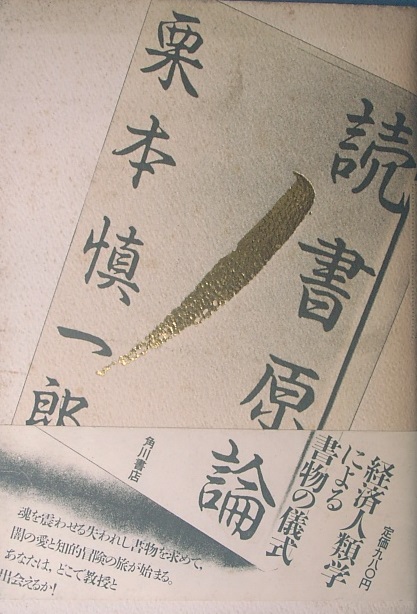 読書原論
栗本慎一郎
経済人類学
による
書物の儀式
定価九八〇円
角川書店
魂を震わせる失われし書物を求めて、
闇の愛と知的冒険の旅が始まる。
あなたは、どこで教授と
出会えるか!